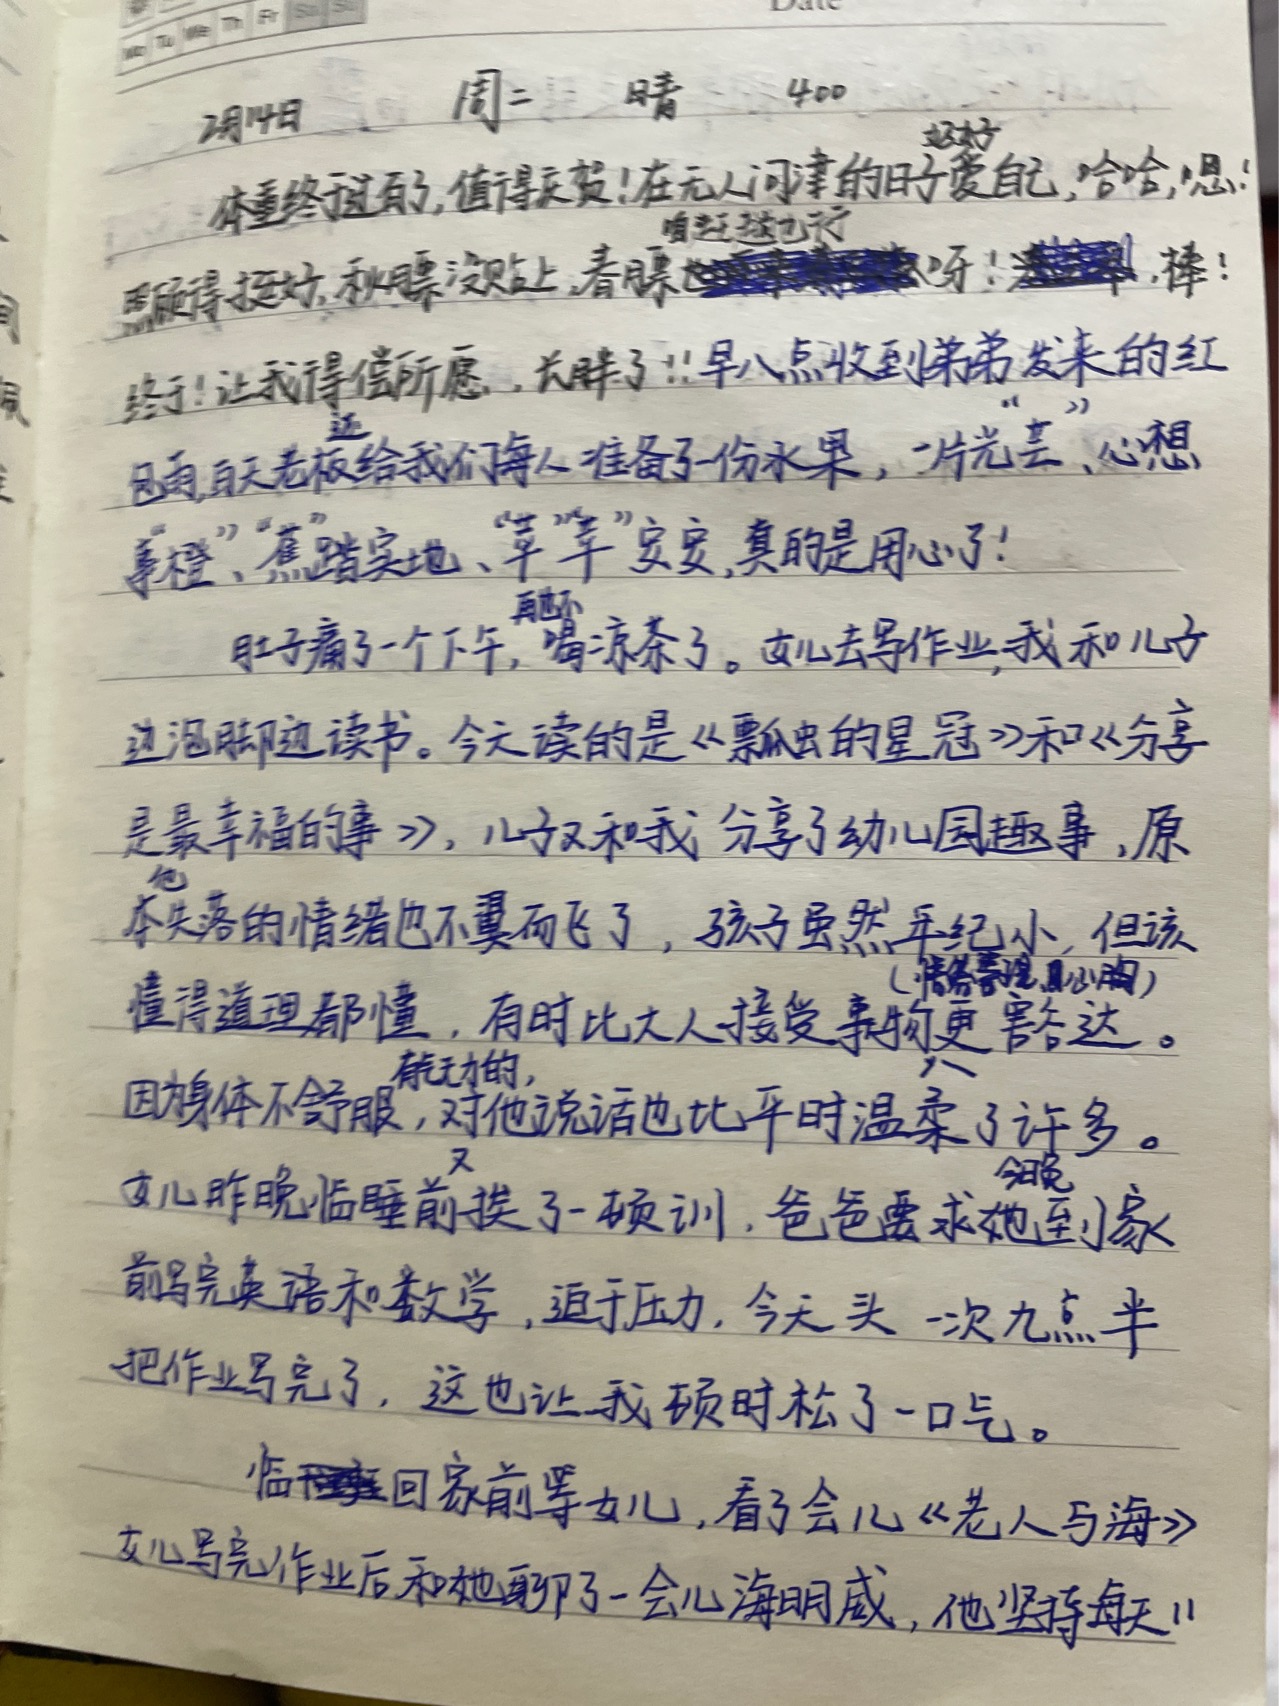 Date
Mo Tu We Th Fr Sa Su
2月14日 周二 晴 400
体重终于过百了,值得庆贺!在无人问津的日子好好爱自己,哈哈,嗯!
照顾得挺好,秋膘没贴上,春膘咱赶趟也行呀!棒!
终于!让我得偿所愿,长胖了!!早八点收到弟弟发来的红
包雨,白天老板还给我们每人准备了一份水果,一片光“芸”、心想
事“橙”、“蕉”踏实地、“苹”“苹”安安,真的是用心了!
肚子痛了一个下午,再也不喝凉茶了。女儿去写作业,我和儿子
边泡脚边读书。今天读的是《瓢虫的星冠》和《分享
是最幸福的事》,儿子又和我分享了幼儿园趣事,原
本他失落的情绪也不翼而飞了,孩子虽然年纪小,但该
懂得道理都懂,有时比大人接受事物(情绪管理,具心胸)更豁达。
因为身体不舒服,有气无力的,对他说话也比平时温柔了许多。
女儿昨晚临睡前又挨了一顿训,爸爸要求她今晚到家
前写完英语和数学,迫于压力,今天头一次九点半
把作业写完了,这也让我顿时松了一口气。
临回家前等女儿,看了会儿《老人与海》
女儿写完作业后和她聊了一会儿海明威,他坚持每天